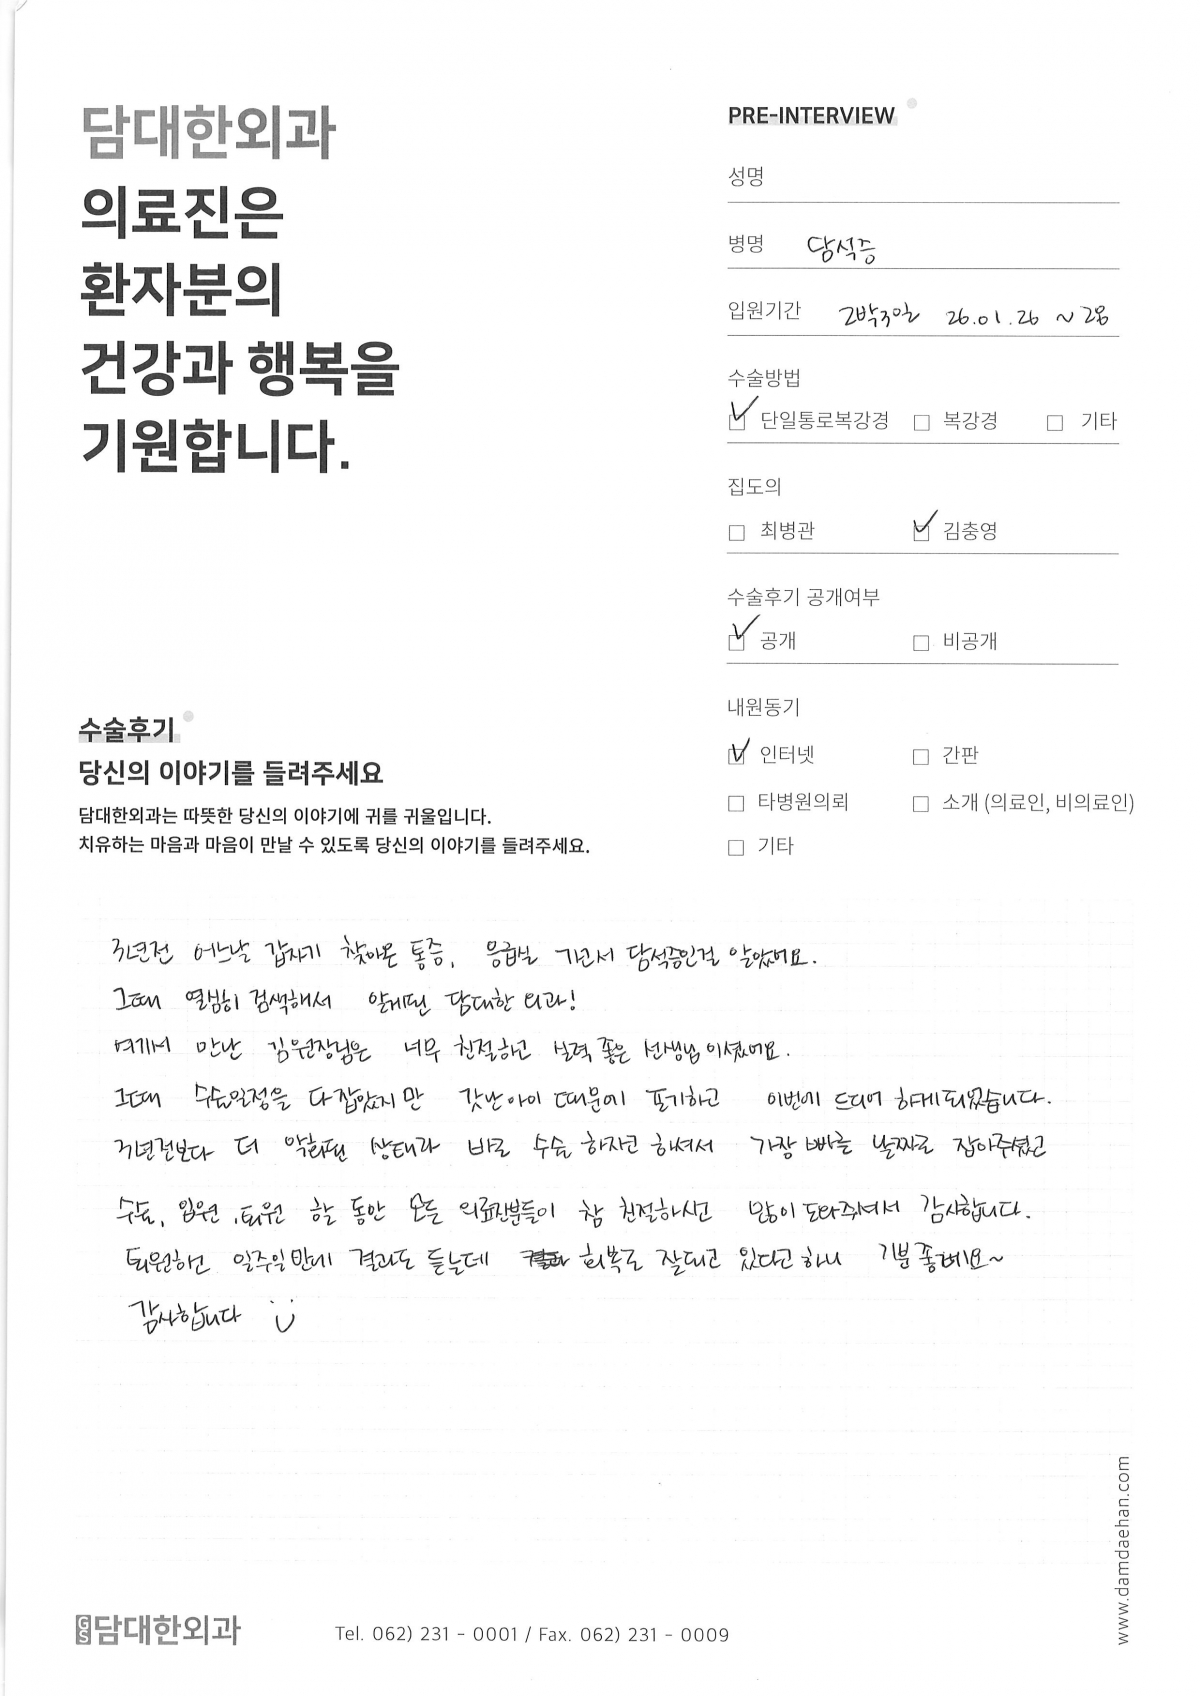 담대한외과
의료진은
환자분의
건강과 행복을
기원합니다.
PRE-INTERVIEW
성명
병명 담석증
입원기간 2박3일 26.01.26 ~ 28
수술방법
단일통로복강경 복강경 기타
집도의
최병관 김충영
수술후기 공개여부
공개 비공개
내원동기
인터넷 간판
타병원의뢰 소개 (의료인, 비의료인)
기타
수술후기
당신의 이야기를 들려주세요
담대한외과는 따뜻한 당신의 이야기에 귀를 귀울입니다.
치유하는 마음과 마음이 만날 수 있도록 당신의 이야기를 들려주세요.
3년전 어느날 갑자기 찾아온 통증, 응급실 가고서 담석증인걸 알았어요.
그때 열심히 검색해서 알게된 담대한 외과!
여기서 만난 김원장님은 너무 친절하고 실력 좋은 선생님이셨어요.
그때 수술일정을 다 잡았지만 갓난아이 때문에 포기하고 이번에 드디어 하게되었습니다.
3년전보다 더 악화된 상태라 바로 수술 하자고 하셔서 가장 빠른 날짜로 잡아주셨고
수술, 입원, 퇴원 할 동안 모든 의료진분들이 참 친절하시고 많이 도와주셔서 감사합니다.
퇴원하고 일주일만에 결과도 듣는데 회복도 잘되고 있다고하니 기분좋네요~
감사합니다
GS 담대한외과
Tel. 062) 231 - 0001 / Fax. 062) 231 - 0009
www.damdaehan.com